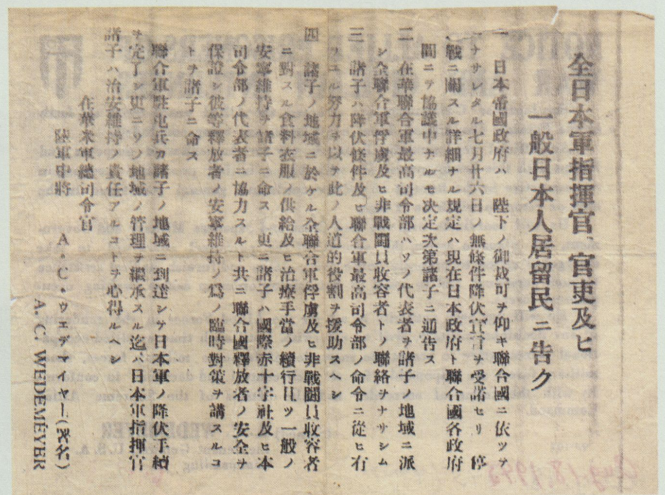 全日本軍指揮官、官吏及ヒ
一般日本人居留民ニ告ク
一 日本帝國政府ハ 陛下ノ御裁可ヲ仰キ聯合國ニ依ツテ
ナサレタル七月廿六日ノ無條件降伏宣言ヲ受諾セリ 停
戰ニ關スル詳細ナル規定ハ現在日本政府ト聯合國各政府
間ニテ協議中ナルモ決定次第諸子ニ通告ス
二 在華聯合軍最高司令部ハソノ代表者ヲ諸子ノ地域ニ派
シ全聯合軍俘虜及ヒ非戰鬪員收容者トノ聯絡ヲナサシム
三 諸子ハ降伏條件及ヒ聯合軍最高司令部ノ命令ニ從ヒ有
ソユル努力ヲ以テ此ノ人道的役割ヲ援助スヘシ
四 諸子ノ地域ニ於ケル全聯合軍俘虜及ヒ非戰鬪員收容者
ニ對スル食料衣服ノ供給及ヒ治療手當ノ續行且ツ一般ノ
安寧維持ヲ諸子ニ命ス 更ニ諸子ハ國際赤十字社及ヒ本
司令部ノ代表者ニ協力スルト共ニ聯合國釋放者ノ安全ヲ
保證シ彼等釋放者ノ安寧維持ノ爲ノ臨時對策ヲ講スルコ
トヲ諸子ニ命ス
聯合軍駐屯兵カ諸子ノ地域ニ到達シテ日本軍ノ降伏手續
ヲ完了シ更ニソノ地域ノ管理ヲ繼承スル迄ハ日本軍指揮官
諸子ハ治安維持ノ責任アルコトヲ心得ルヘシ
在華米軍總司令官
陸軍中將
A・C・ウエデマイヤー(署名)
A. C. WEDEMEYER